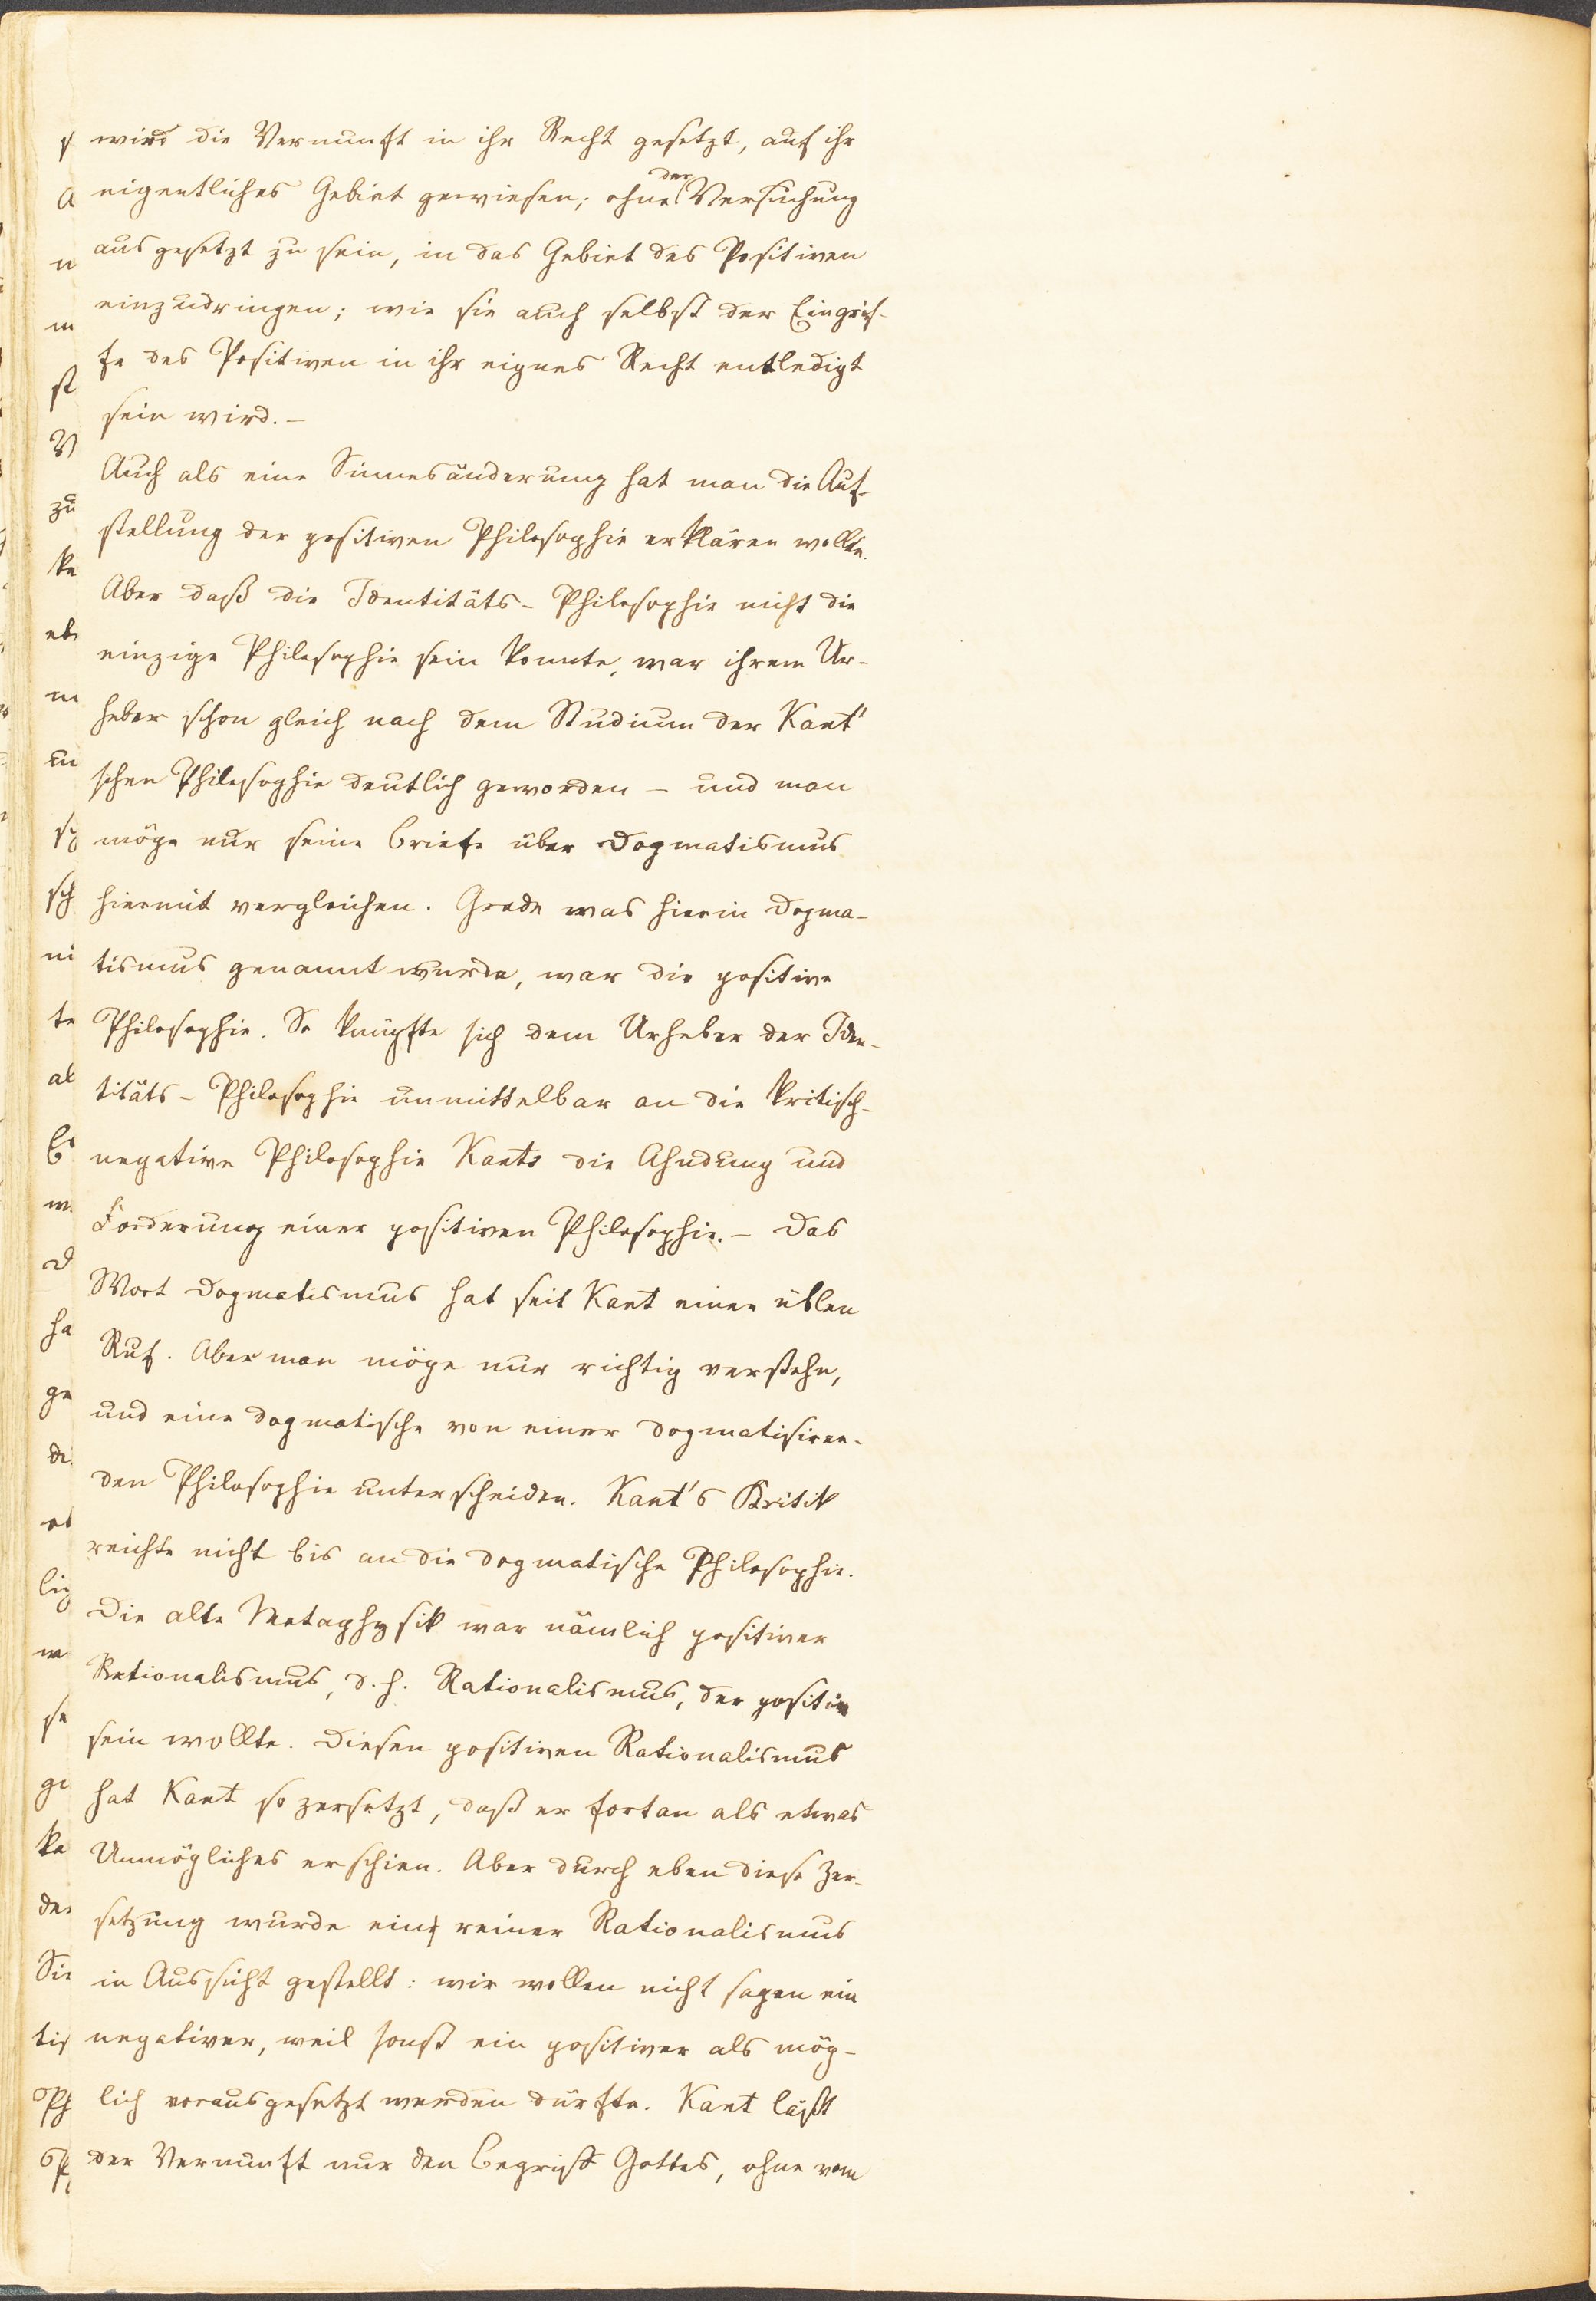 wird die Vernunft in ihr Recht gesetzt, auf ihr
eigentliches Gebiet gewiesen; ohne der Versuchung
ausgesetzt zu sein, in das Gebiet des Positiven
einzudringen; wie sie auch selbst der Eingrif-
fe des Positiven in ihr eignes Recht entledigt
sein wird. –
Auch als eine Sinnesänderung hat man die Auf-
stellung der positiven Philosophie erklären wollen.
Aber daß die Identitäts-Philosophie nicht die
einzige Philosophie sein konnte, war ihrem Ur-
heber schon gleich nach dem Studium der Kant'
schen Philosophie deutlich geworden – und man
möge nur seine Briefe über Dogmatismus
hiermit vergleichen. Grade was hierin Dogma-
tismus genannt wurde, war die positive
Philosophie. So knüpfte sich dem Urheber der Iden-
titäts-Philosophie unmittelbar an die kritisch-
negative Philosophie Kants die Ahndung und
Forderung einer positiven Philosophie. – Das
Wort Dogmatismus hat seit Kant einen üblen
Ruf. Aber man möge nur richtig verstehn,
und eine dogmatische von einer dogmatisiren-
den Philosophie unterscheiden. Kant's Kritik
reichte nicht bis an die dogmatische Philosophie.
Die alte Metaphysik war nämlich positiver
Rationalismus, d.h. Rationalismus, der positiv
sein wollte. Diesen positiven Rationalismus
hat Kant so zersetzt, daß er fortan als etwas
Unmögliches erschien. Aber durch eben diese Zer-
setzung wurde ein reiner Rationalismus
in Aussicht gestellt: wir wollen nicht sagen ein
negativer, weil sonst ein positiver als mög-
lich vorausgesetzt werden dürfte. Kant läßt
der Vernunft nur den Begriff Gottes, ohne vom